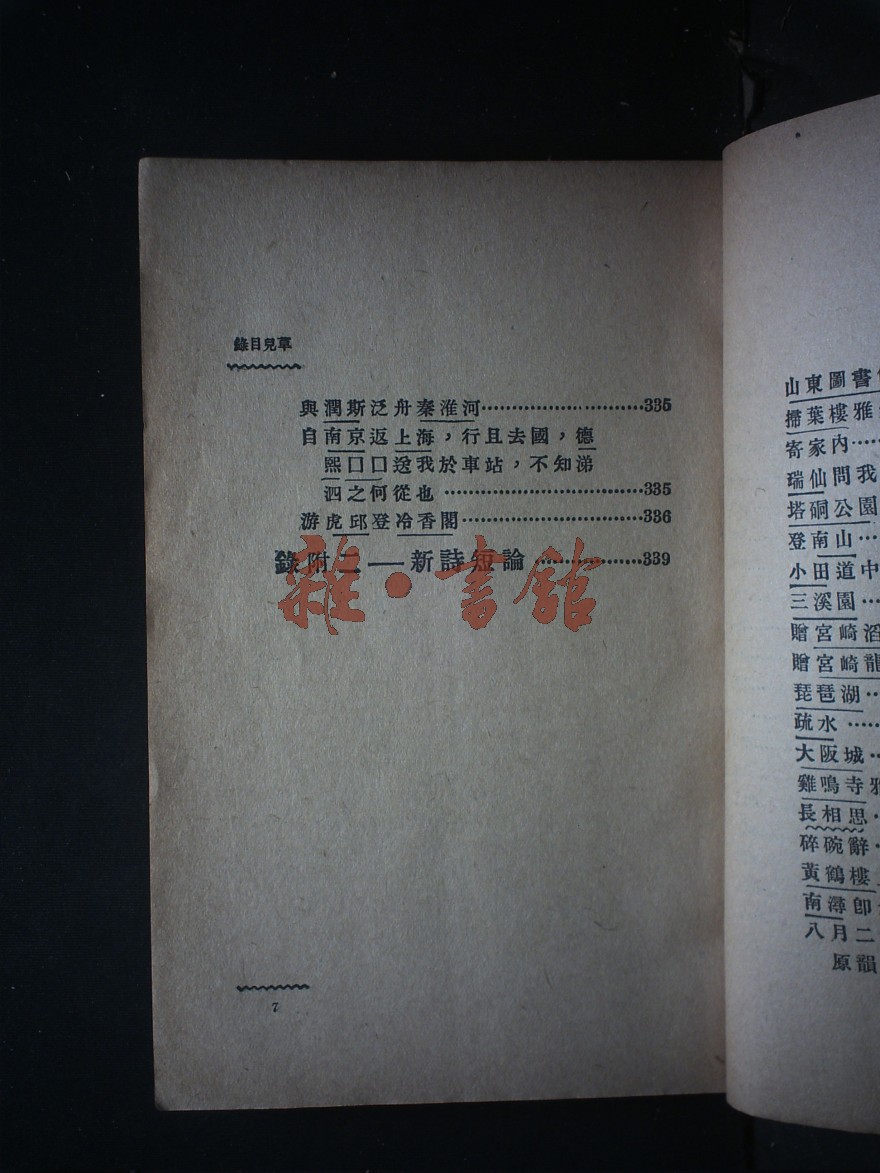 錄目兒草
與潤斯泛舟秦淮河……………………335
自南京返上海，行且去國，德
熙口口送我於車站，不知涕
泗之何從也……………………335
游虎邱登冷香閣……………………336
錄附二—新詩短論……………339
7
雜·書館
山東圖書
掃葉樓雅
寄家內……
瑞仙問我
塔硐公園
登南山…
小田道中
三溪園…
贈宮崎滔
贈宮崎龍
琵琶湖…
疏水……
大阪城…
雞鳴寺雅
長相思…
碎碗辭…
黃鶴樓
南潯卽
八月二
原韻